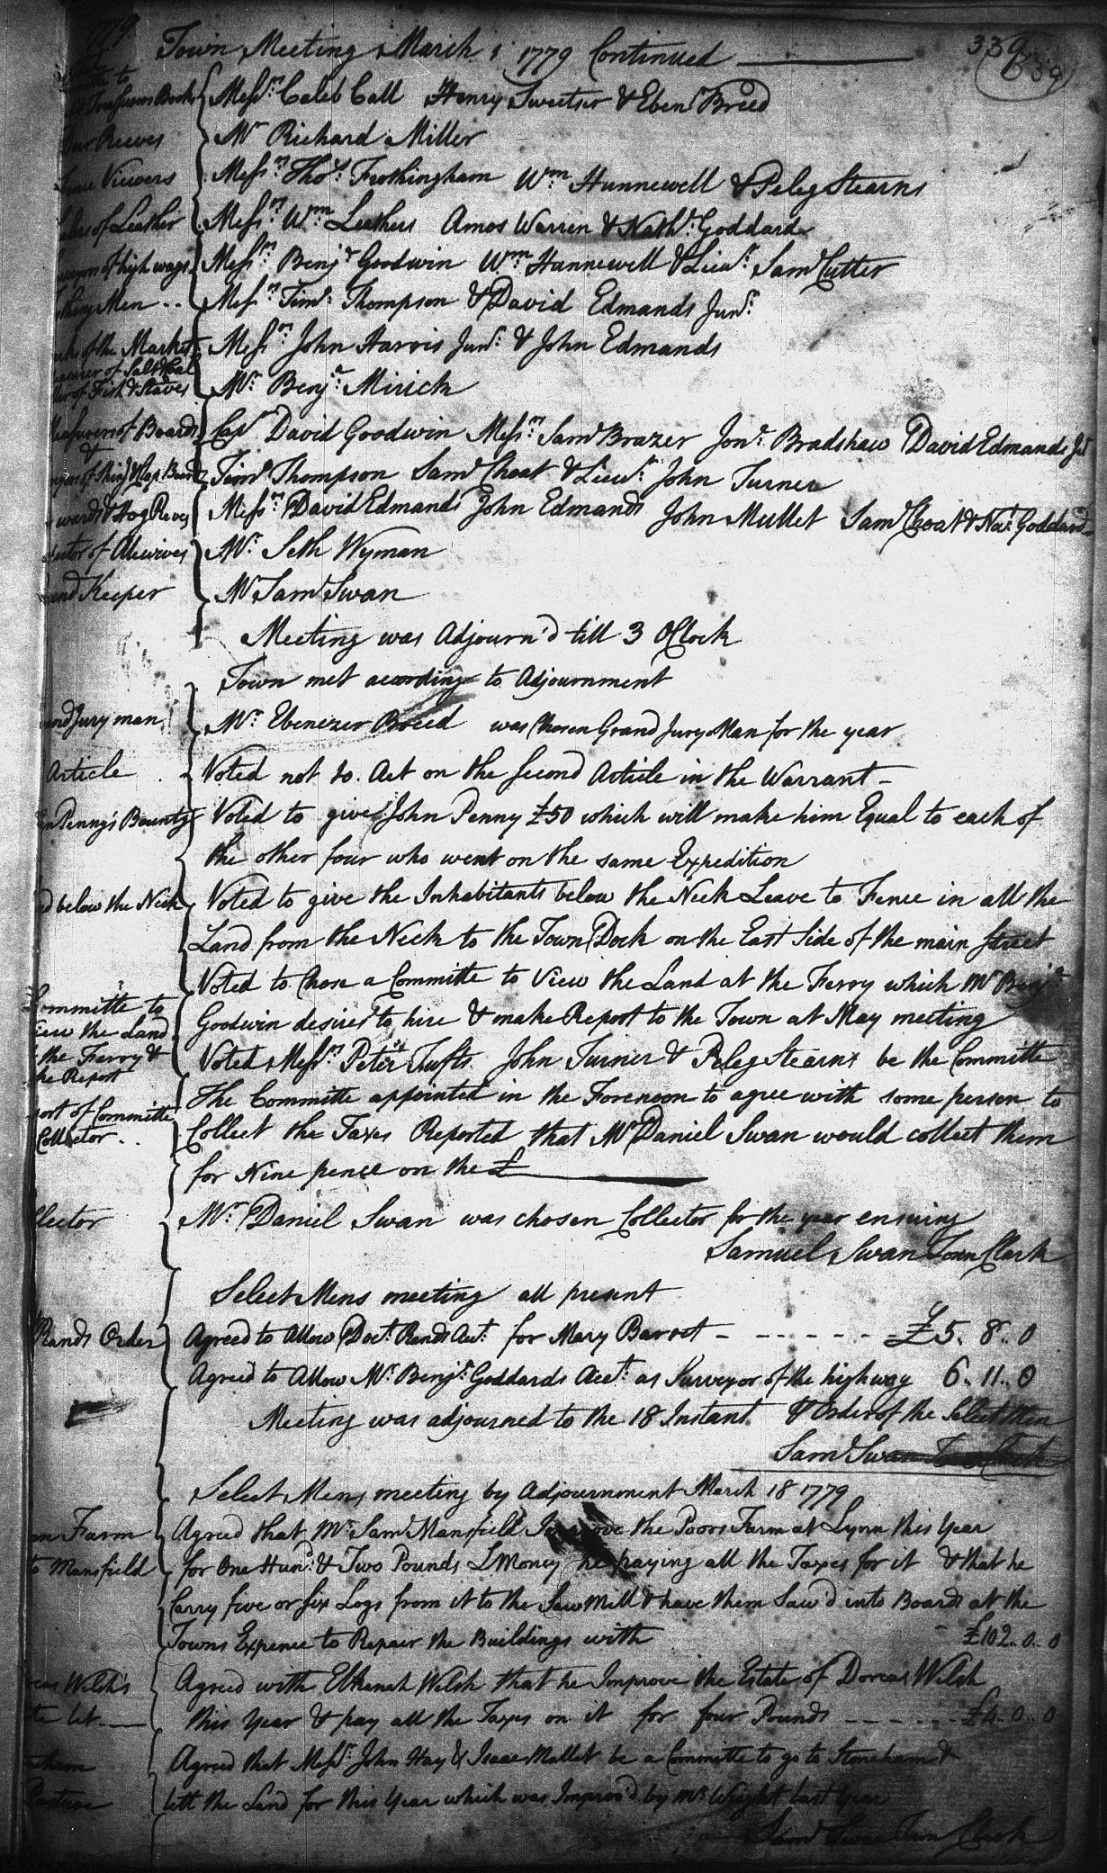 Town Meeting March 1 1779 Continued
339
339
Treasurers Books { Messrs. Caleb Call Henry Sweetser & Eben Breed
Reeves } Mr Richard Miller
Viewers Messrs. Thos. Frothingham Wm Hunnewell & Peleg Stearns
of Leather Messrs. Wm Leathers Amos Warren & Nathl. Goddard
of high ways Messrs. Benja Goodwin Wm Hunnewell & Lieut. Saml Cutter
Men .. Messrs. Timo. Thompson & David Edmands Junr.
of the Market Messrs. John Harris Junr. & John Edmands
of Salt & Cal
of Fish & Staves Mr. Benja. Mirick
of Boards Capt David Goodwin Messrs. Saml Brazer Jona. Bradshaw David Edmands Jr
&
of Shing & Clap Boards Timo Thompson Saml Choat & Lieut. John Turner
& Hog Reves Messrs David Edmands John Edmands John Mullet Saml Choat & Nat. Goddard
of Alewives Mr. Seth Wyman
Keeper Mr Saml Swan
Meeting was Adjourn'd till 3 OClock
Town met acording to Adjournment
Jury man Mr. Ebenezer Breed was Chosen Grand Jury Man for the year
Article Voted not to Act on the Second Article in the Warrant
Penny's Bounty Voted to give John Penny £50 which will make him Equal to each of
the other four who went on the same Expedition
below the Neck Voted to give the Inhabitants below the Neck Leave to Fence in all the
Land from the Neck to the Town Dock on the East Side of the main Street
Voted to Chose a Committe to View the Land at the Ferry which Mr Benja
Committe to
the Land Goodwin desires to hire & make Report to the Town at May meeting
the Ferry & Voted Messrs. Peter Tufts John Turner & Peleg Stearns be the Committe
Report
The Committe appointed in the Forenoon to agree with some person to
of Committe
Collector .. Collect the Taxes Reported that Mr Daniel Swan would collect them
for Nine pence on the £
Mr. Daniel Swan was chosen Collector for the year ensuing
Samuel Swan Town Clark
Select Mens meeting all present
Rands Order Agreed to Allow Doct. Rands Act. for Mary Barrot - - - - - - £5. 8. 0
Agreed to Allow Mr. Benja. Goddards Acct. as Surveyor of the highway 6.. 11.. 0
Meeting was adjourned to the 18 Instant & Order of the Select Men
Saml Swan Town Clark
Select Mens meeting by Adjournment March 18 1779
Farm Agreed that Mr Saml Mansfield Improve the Poors Farm at Lynn this Year
to Mansfield for One Hund. & Two Pounds LMoney he paying all the Taxes for it & that he
Carry five or six Logs from it to the Saw Mill & have them Saw'd into Boards at the
Towns Expence to Repair the Buildings with - £102.. 0.. 0
Welsh's Agreed with Elkanah Welsh that he Improve the Estate of Dorcas Welsh
let this Year & pay all the Taxes on it for four Pounds - - - - - - £4.. 0.. 0
Agreed that Messrs. John Hay & Isaac Mallet be a Committe to go to Stoneham &
Pasture lett the Land for this Year which was Improv'd by Mr Wright last Year
Saml Swan Town Clark